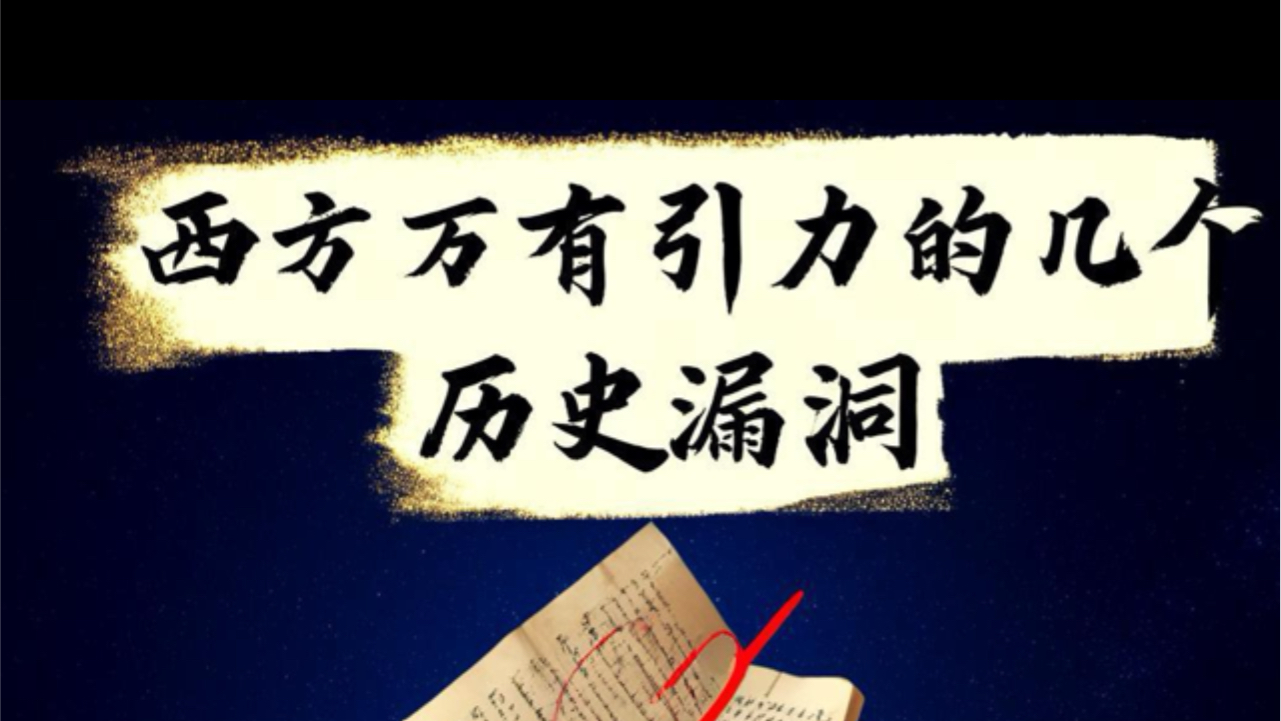 西方万有引力的几个
历史漏洞